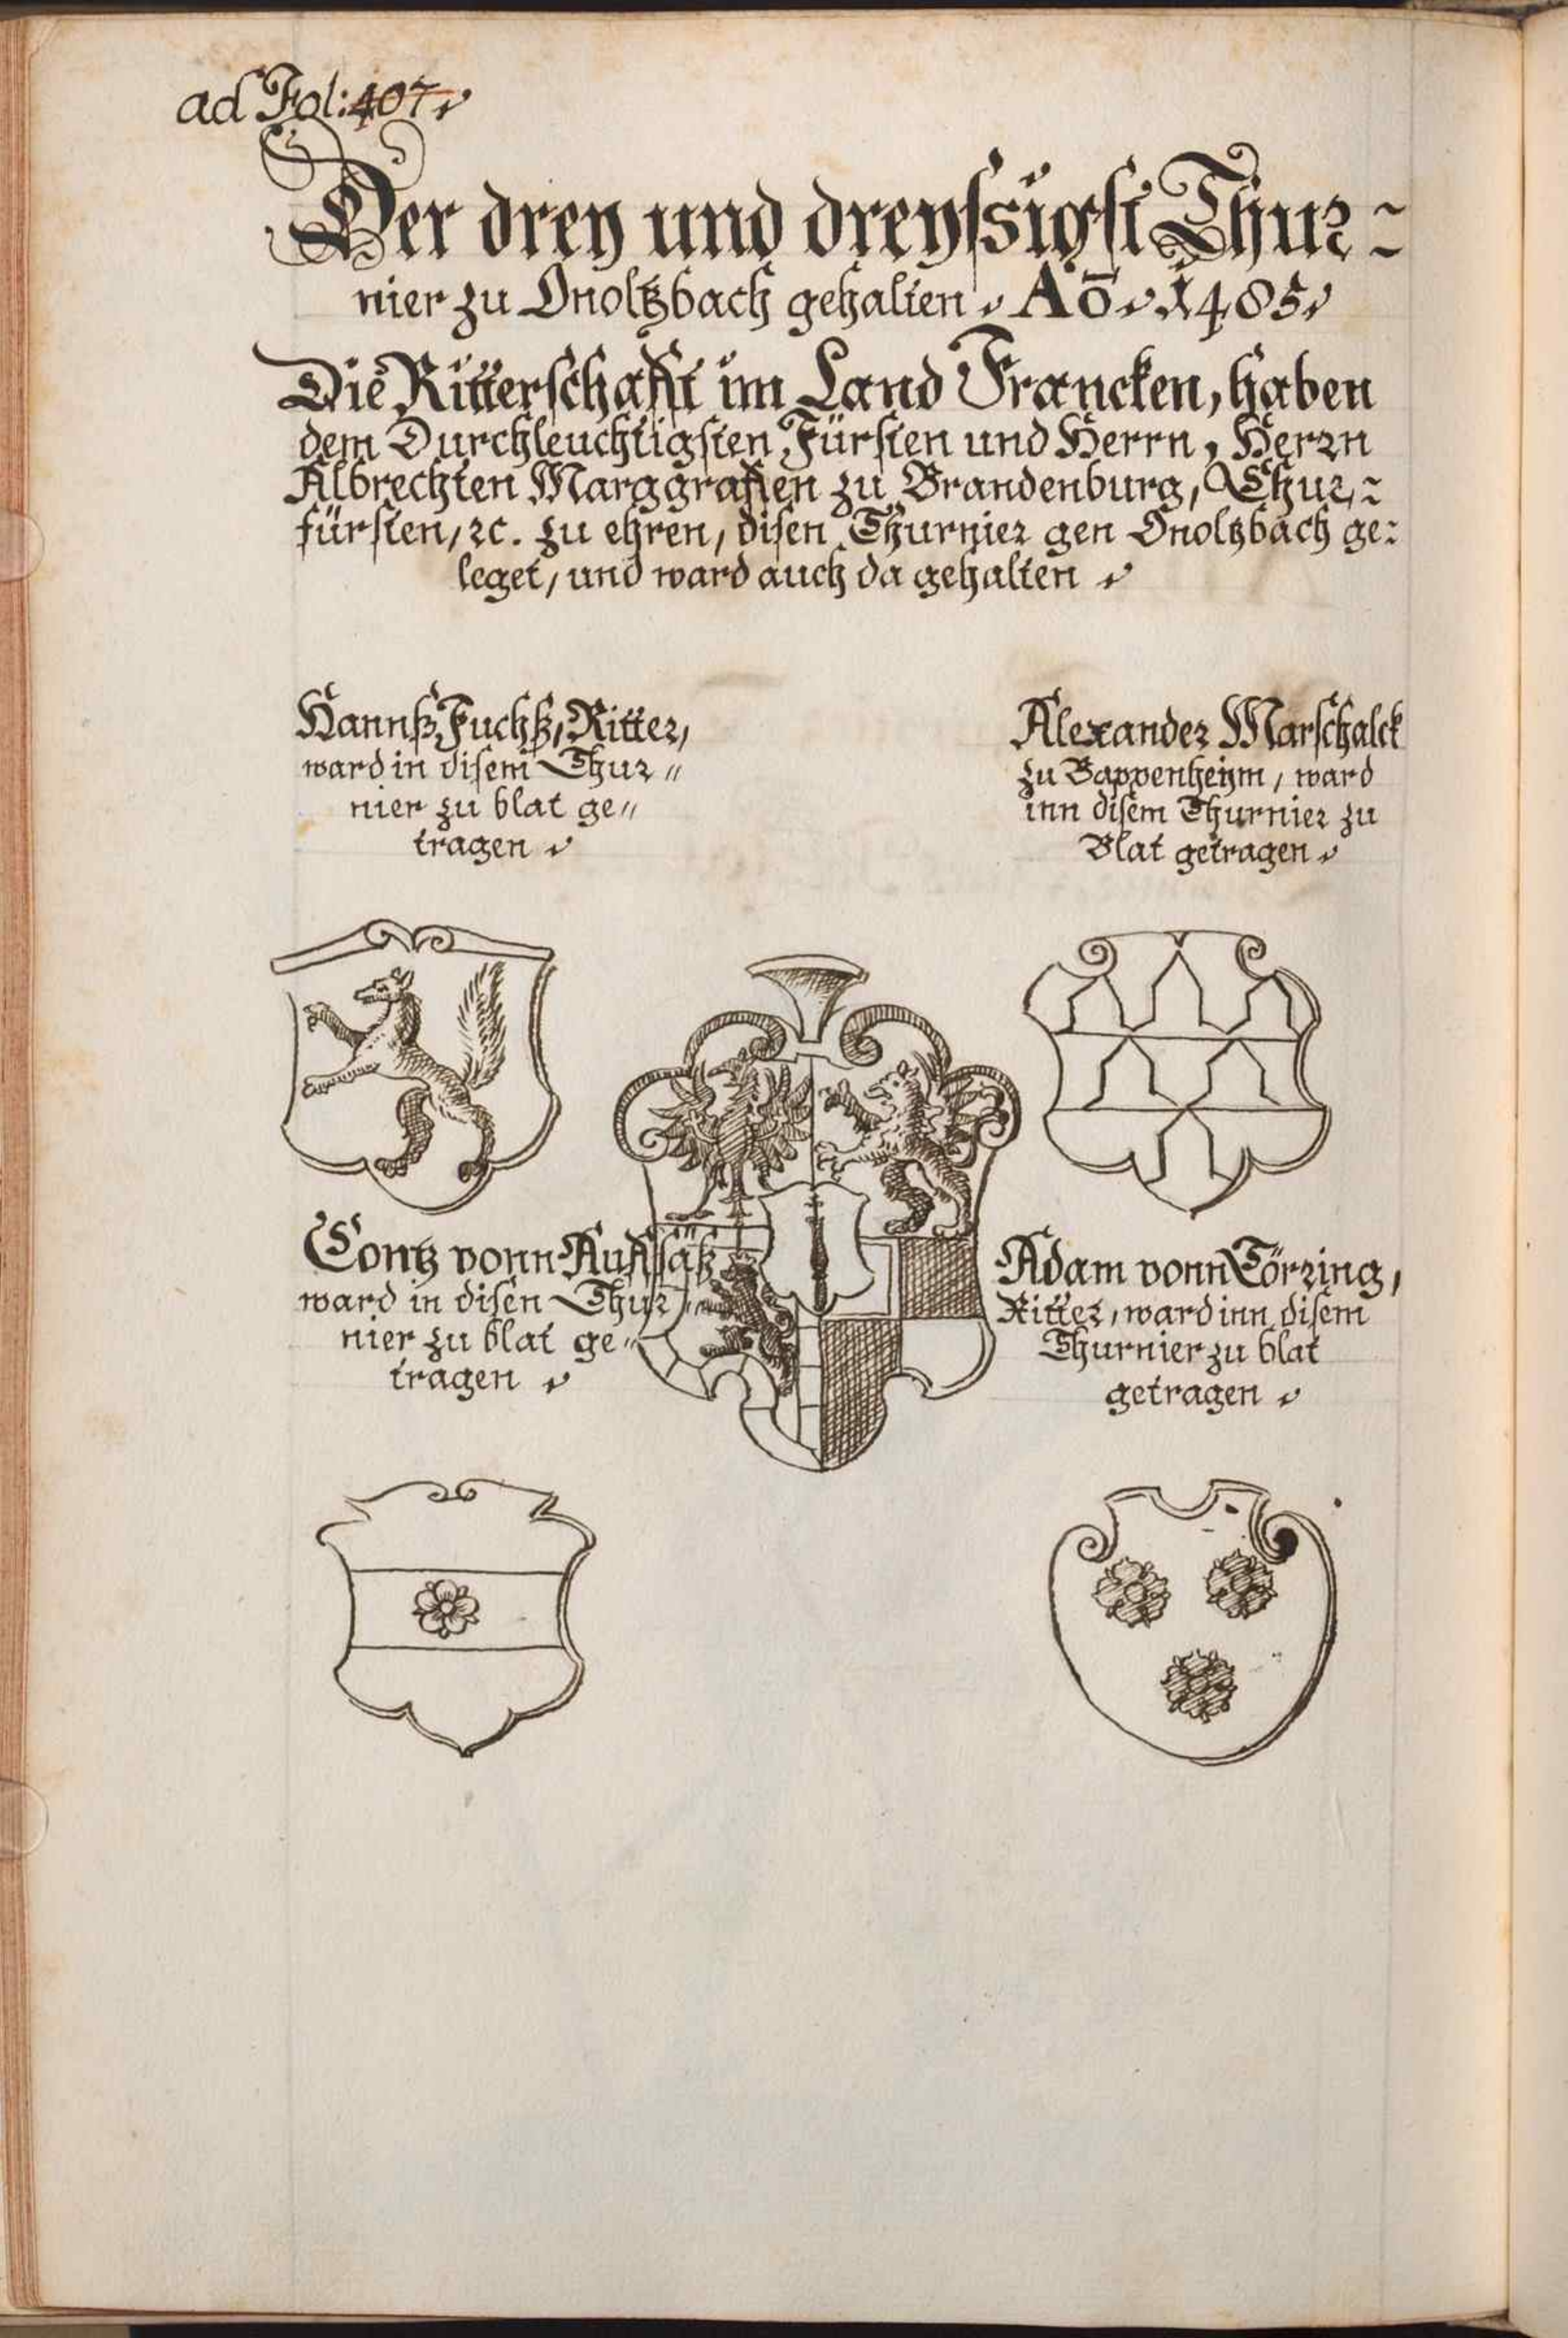 ad Fol: 407
Der drey und dreyssigst Thur-
nier zu Onoltzbach gehalten. Aō. 1485.
Die Ritterschafft im Land Francken, haben
dem Durchleuchtigsten Fürsten und Herrn, Herrn
Albrechten Marggraffen zu Brandenburg, Chur-
fürsten, ꝛc. zu ehren, disen Thurnier gen Onoltzbach ge-
leget, und ward auch da gehalten.
Hannß Fuchß, Ritter,
ward in disem Thur-
nier zu blat ge-
tragen.
Alexander Marschalck
zu Bappenheym, ward
inn disem Thurnier zu
Blat getragen.
Contz vonn Auffsäß
ward in disen Thur-
nier zu blat ge-
tragen.
Adam vonn Törring,
Ritter, ward inn disem
Thurnier zu blat
getragen.